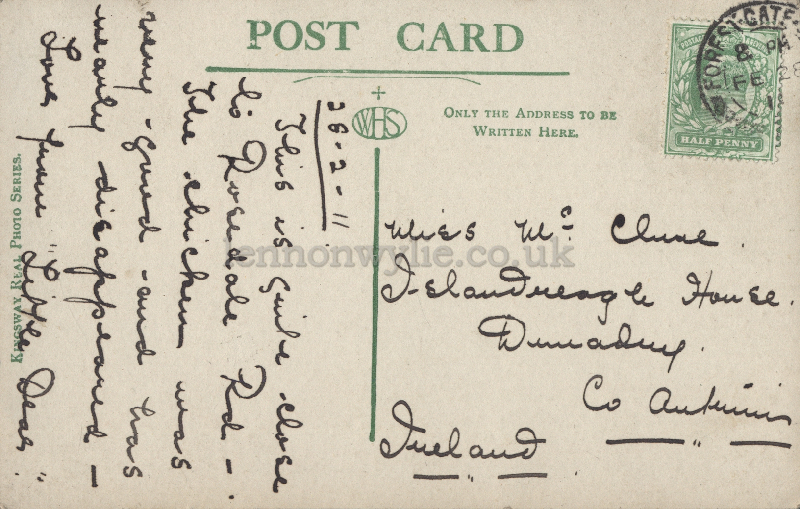 POST CARD
WHS
ONLY THE ADDRESS TO BE
WRITTEN HERE.
FOREST-GATE
8 PM
FE 28
HALF PENNY
26-2-11
This is quite close
to Rosedale Rd-.
The chicken was
very -good -and has
nearly disappeared -
Love from "Little Dear".
Miss Mc. Clure.
Islandreagh House.
Dunadry.
Co Antrim
Ireland
KINGSWAY REAL PHOTO SERIES.
lennonwylie.co.uk